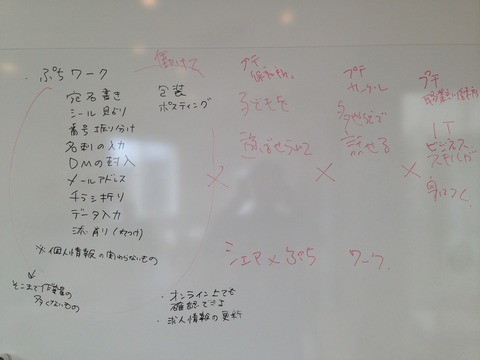 ・ぷちワーク
宛名書き
シール貼り
番号振り分け
名刺の入力
DMの封入
メールアドレス
チラシ折り
データ入力
※個人情報の関わらないもの
そこまで作業量の
多くないもの
包装
ポスティング
働けて
プチ
保育所
子どもを
預けられて
×
プチ
カレッジ
話せる
×
プチ
IT
ビジネス
スキルが
身につく
×
シェア×ぷち ワーク
・オンライン上でも
確認できる
・求人情報の更新